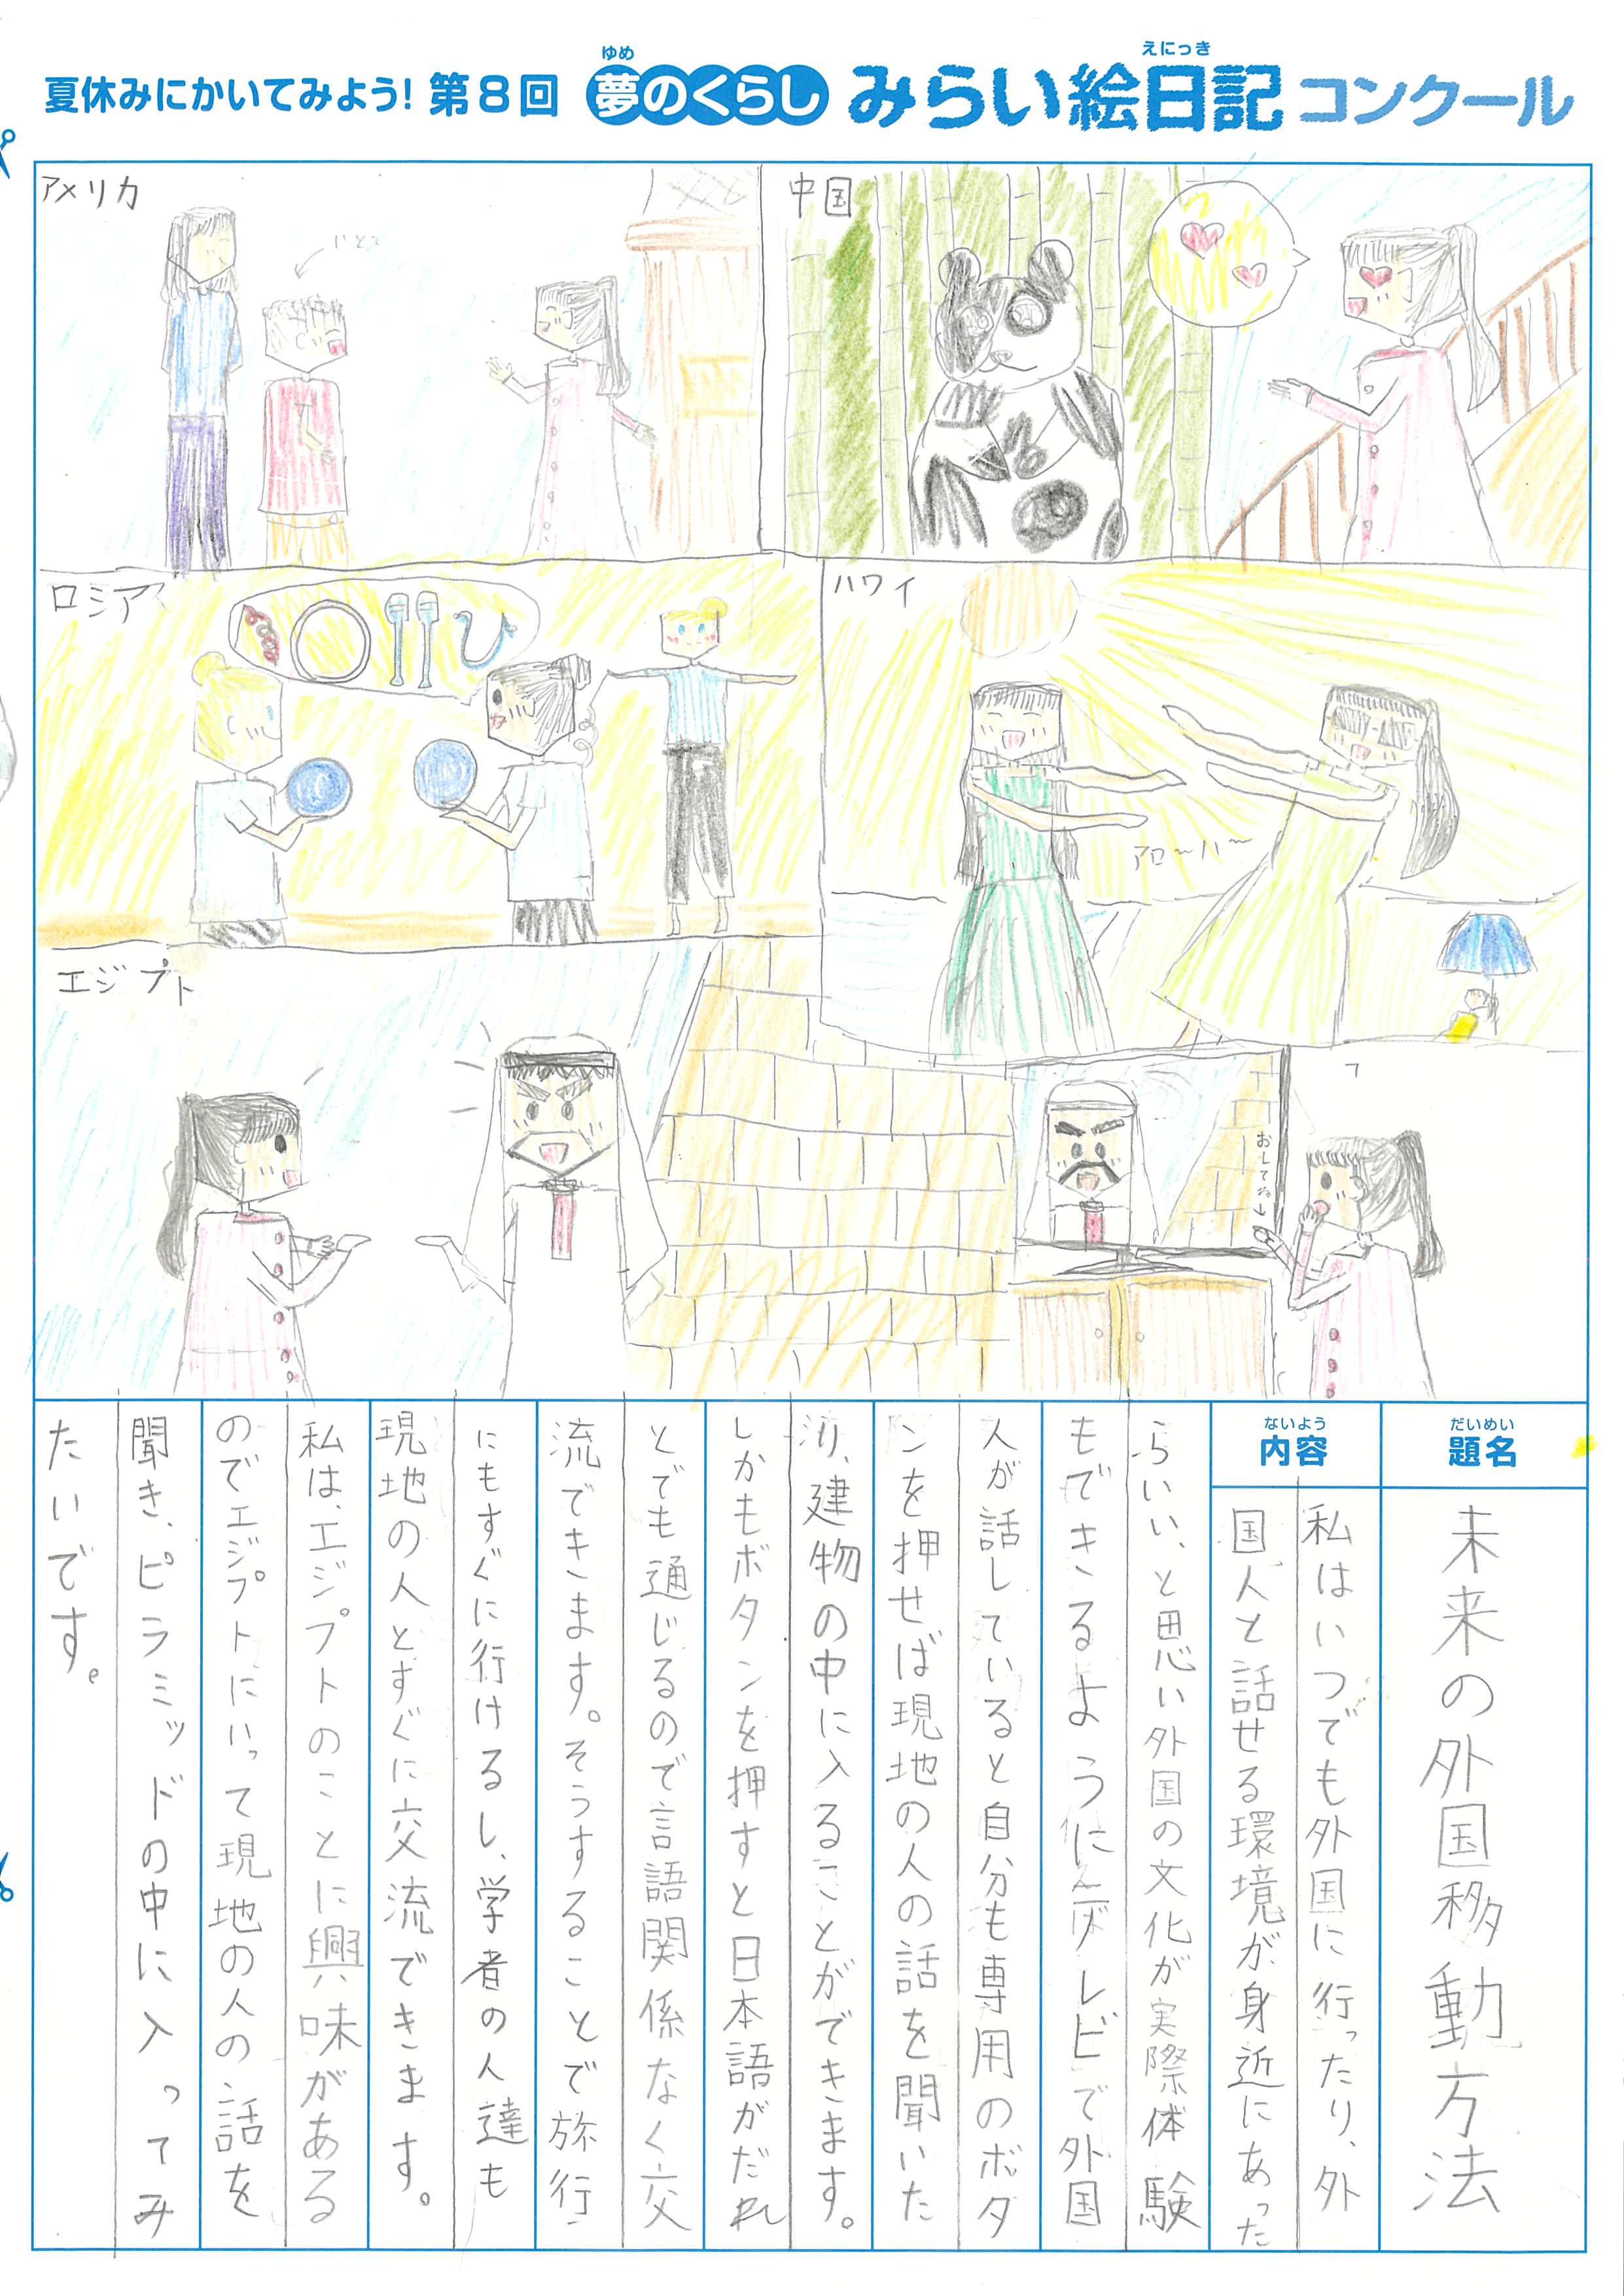 夏休みにかいてみよう! 第8回 夢のくらし みらい絵日記 コンクール
ゆめ
えにっき
アメリカ
いとこ
中国
ロシア
ハワイ
アロ〜ハ〜
エジプト
おしてね↓
だいめい
題名
未来の外国移動方法
ないよう
内容
私はいつでも外国に行ったり、外
国人と話せる環境が身近にあった
らいい、と思い外国の文化が実際体験
もできるように「テレビ」で外国
人が話していると自分も専用のボタ
ンを押せば現地の人の話を聞いた
り、建物の中に入ることができます。
しかもボタンを押すと日本語がだれ
とでも通じるので言語関係なく交
流できます。そうすることで旅行
にもすぐに行けるし、学者の人達も
現地の人とすぐに交流できます。
私は、エジプトのことに興味がある
のでエジプトにいって現地の人の話を
聞き、ピラミッドの中に入ってみ
たいです。